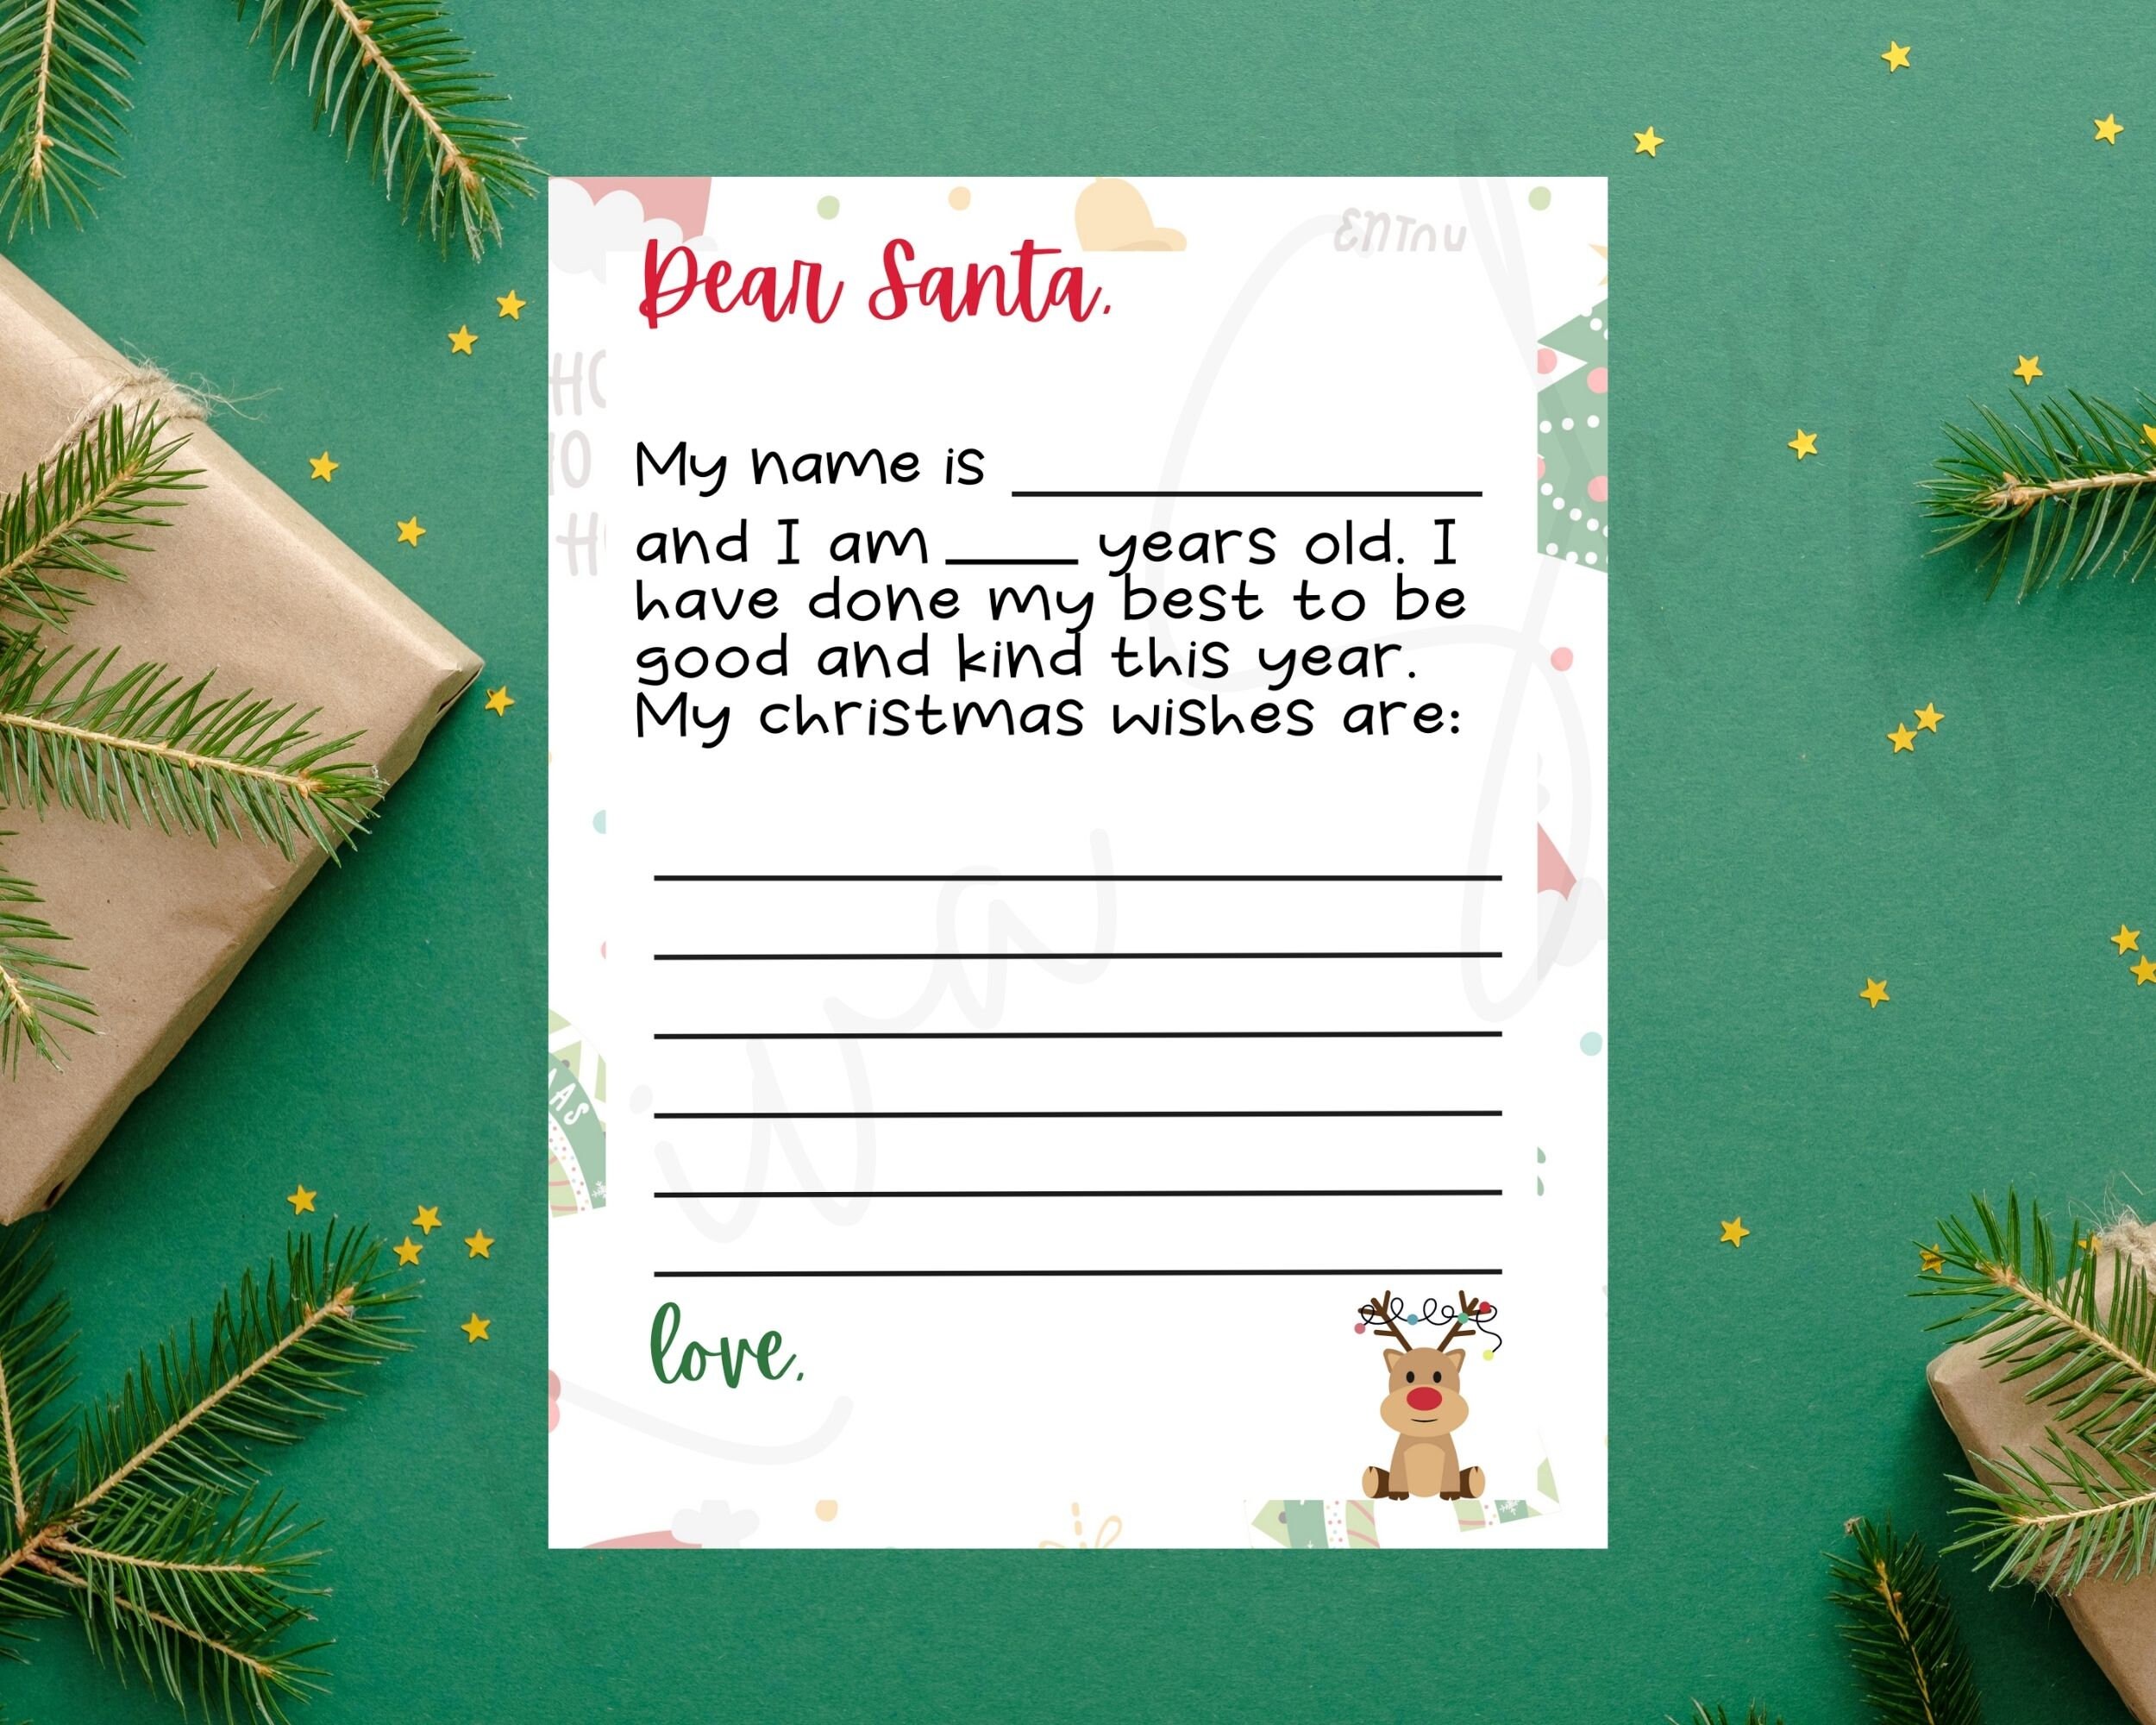 Dear Santa,
My name is
and I am ____ years old. I
have done my best to be
good and kind this year.
My christmas wishes are:
love,